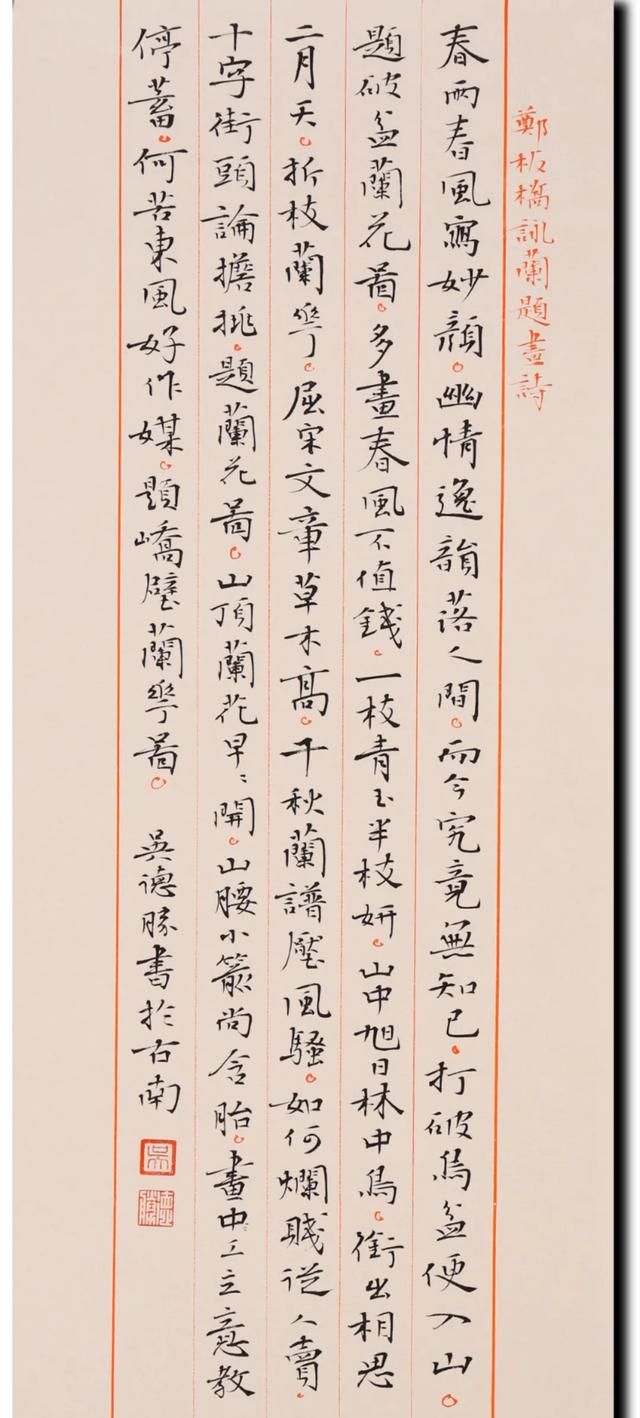 鄭板橋詠蘭題畫詩
春雨春風寫妙顏。幽情逸韻落人間。而今究竟無知己。打破烏盆便入山。
題破盆蘭花圖。多畫春風不值錢。一枝青玉半枝妍。山中旭日林中鳥。銜出相思
二月天。折枝蘭華。屈宋文章草木高。千秋蘭譜壓風騷。如何爛賤從人賣。
十字街頭論擔挑。題蘭花圖。山頂蘭花早〻開。山腰小箭尚含胎。畫中工立意教
停蓄。何苦東風好作媒。題嶠壁蘭華圖。 吳德勝書於古南